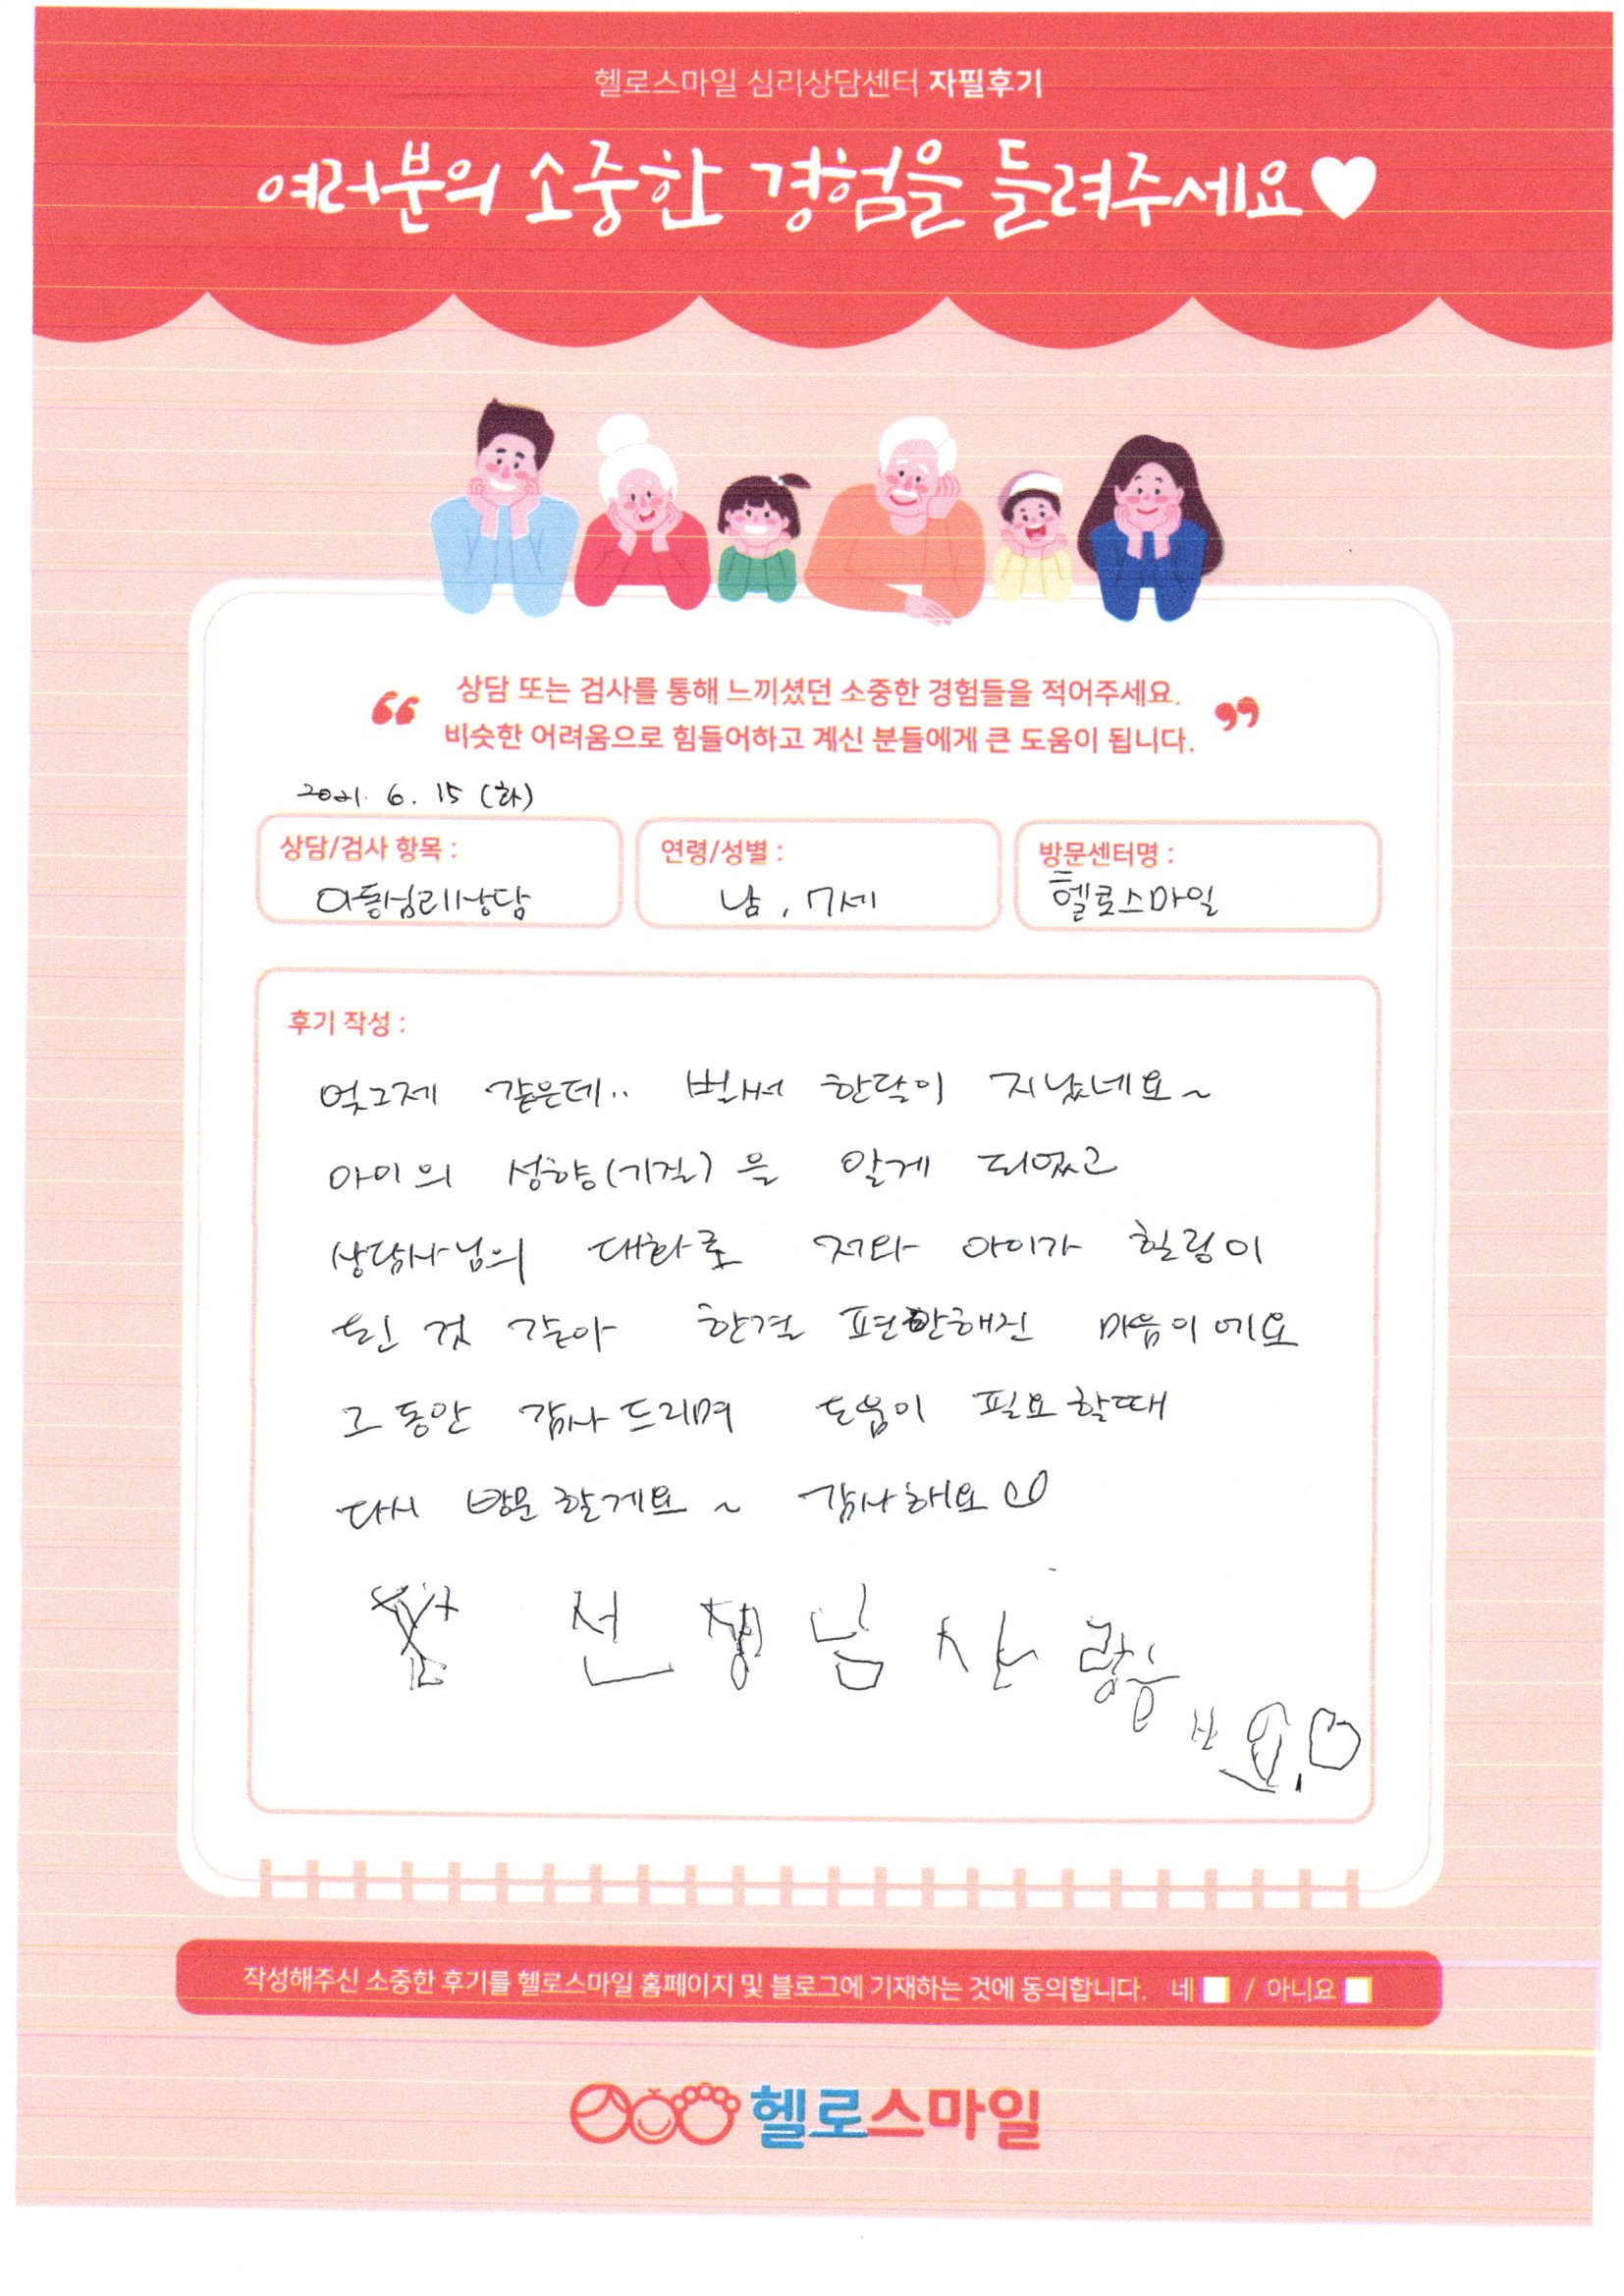 헬로스마일 심리상담센터 자필후기
여러분의 소중한 경험을 들려주세요
상담 또는 검사를 통해 느끼셨던 소중한 경험들을 적어주세요.
비슷한 어려움으로 힘들어하고 계신 분들에게 큰 도움이 됩니다.
2021. 6. 15 (화)
상담/검사 항목 :
아동심리상담
연령/성별 :
남, 7세
방문센터명 :
헬로스마일
후기 작성 :
엊그제 같은데.. 벌써 한달이 지났네요~
아이의 성향(기질)을 알게 되었고
상담사님의 대화로 저와 아이가 힐링이
된 것 같아 한결 편안해진 마음이에요
그동안 감사드리며 도움이 필요할때
다시 방문할게요~ 감사해요
선생님 사랑
작성해주신 소중한 후기를 헬로스마일 홈페이지 및 블로그에 기재하는 것에 동의합니다. 네 / 아니요
헬로스마일